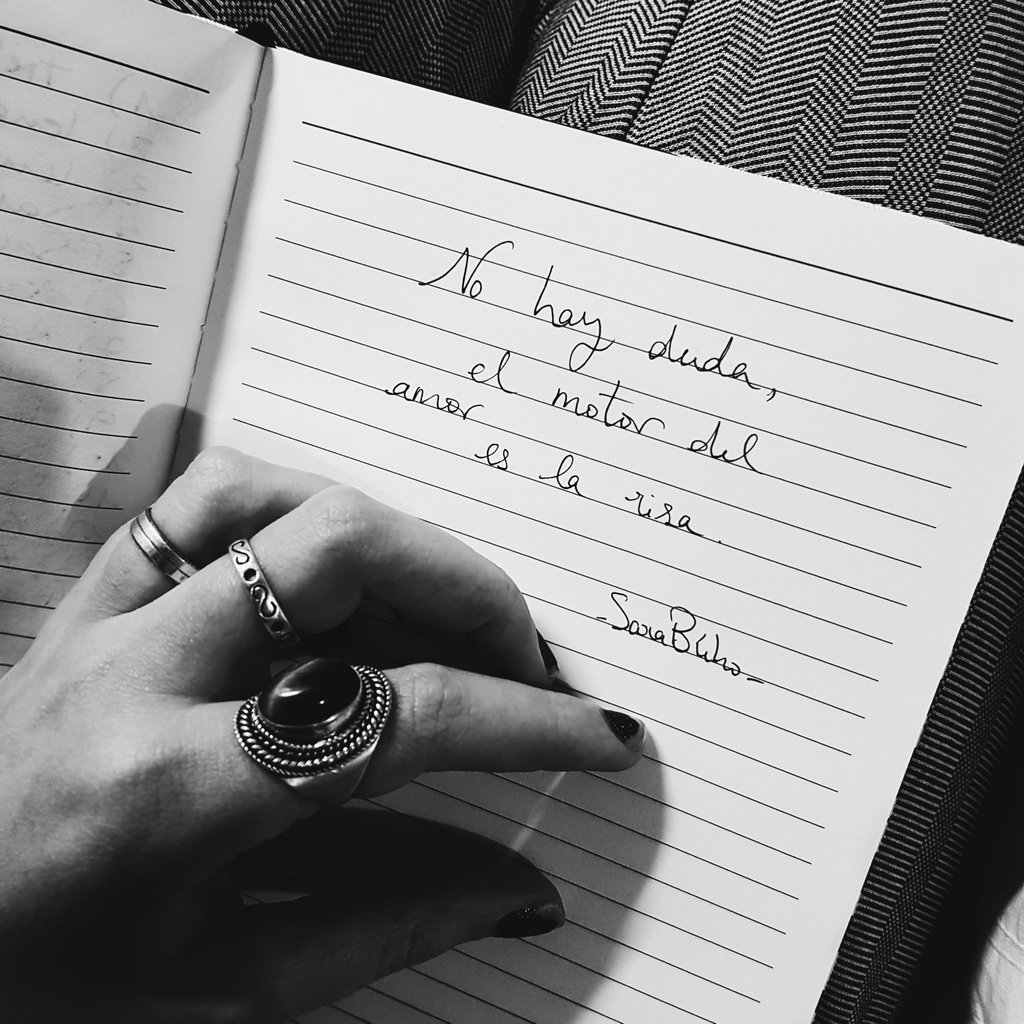 No hay duda,
el motor del
amor
es la risa.
-Sara Búho-